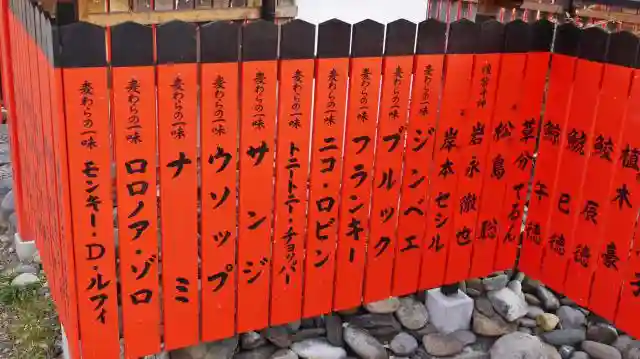 麦わらの一味 モンキー・D・ルフィ
麦わらの一味 ロロノア・ゾロ
麦わらの一味 ナミ
麦わらの一味 ウソップ
麦わらの一味 サンジ
麦わらの一味 トニートニー・チョッパー
麦わらの一味 ニコ・ロビン
麦わらの一味 フランキー
麦わらの一味 ブルック
麦わらの一味 ジンベエ
岸本 セシル
岩永 徹也
松島 聡
草分てるん
鯨 午 徳
鯱 巳 徳
鮫 辰 豪
植木